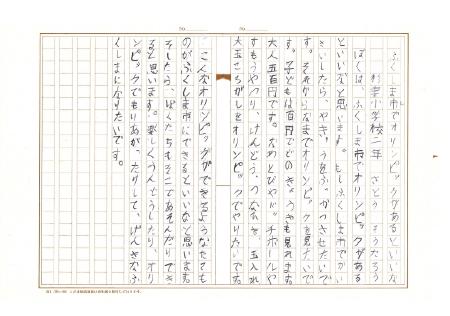 ふくしま市でオリンピックがあるといいな
杉妻小学校二年 さとう そうたろう
ぼくは、ふくしま市でオリンピックがある
といいなと思います。もしふくしま市でかい
さいしたら、やきゅうをふっかつさせたいで
す。それからなまでオリンピックを見たいで
す。子どもは百円でどのきょうぎも見れます。
大人五百円です。なわとびやドッチボールや
すもうやつり、けんどう、つな引き、玉入れ
大玉ころがしをオリンピックでやりたいです。
こんなオリンピックができるようなたても
のがふくしま市にできるといいなと思います。
そしたら、ぼくたちもそこであそんだりでき
ると思います。楽しくうんどうしたり、オリ
ンピックでもりあがったりして、げんきなふ
くしまになりたいです。